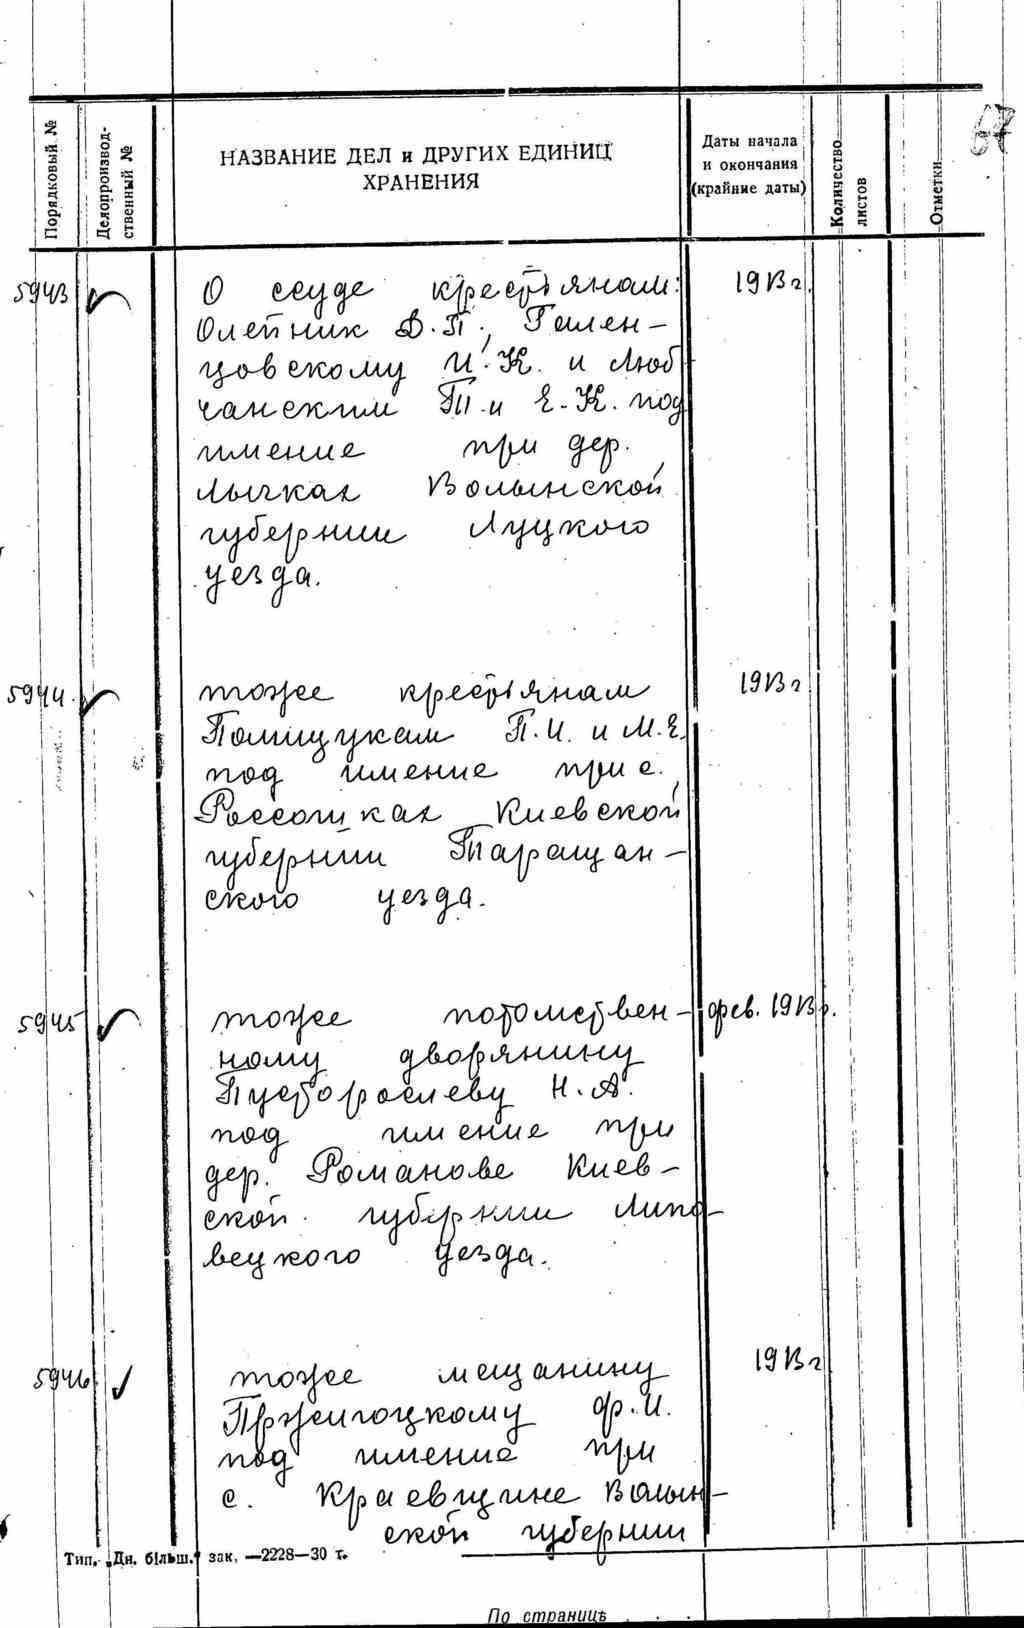 67
Порядковый №
Делопроизвод-
ственный №
НАЗВАНИЕ ДЕЛ и ДРУГИХ ЕДИНИЦ
ХРАНЕНИЯ
Даты начала
и окончания
(крайние даты)
Количество
листов
Отметки
5943
О ссуде крестьянам:
Олейник Д.П., Гален-
цовскому И.К. и Люб
чанским Т. и Е.К. под
имение при дер.
Лычках Волынской
губернии Луцкого
уезда.
1913 г.
5944
тоже крестьянам
Полищукам П.И. и М.Е.
под имение при с.
Россошках Киевской
губернии Таращан-
ского уезда.
1913 г
5945
тоже потомствен-
ному дворянину
Пусторослеву Н.А.
под имение при
дер. Романове Киев-
ской губернии Липо-
вецкого уезда.
фев. 1913 г.
5946
тоже мещанину
Пржигоцкому Ф.И.
под имение при
с. Краевщине Волын-
ской губернии
1913 г
Тип. „Дн. більш." зак. —2228—30 т.
По странице